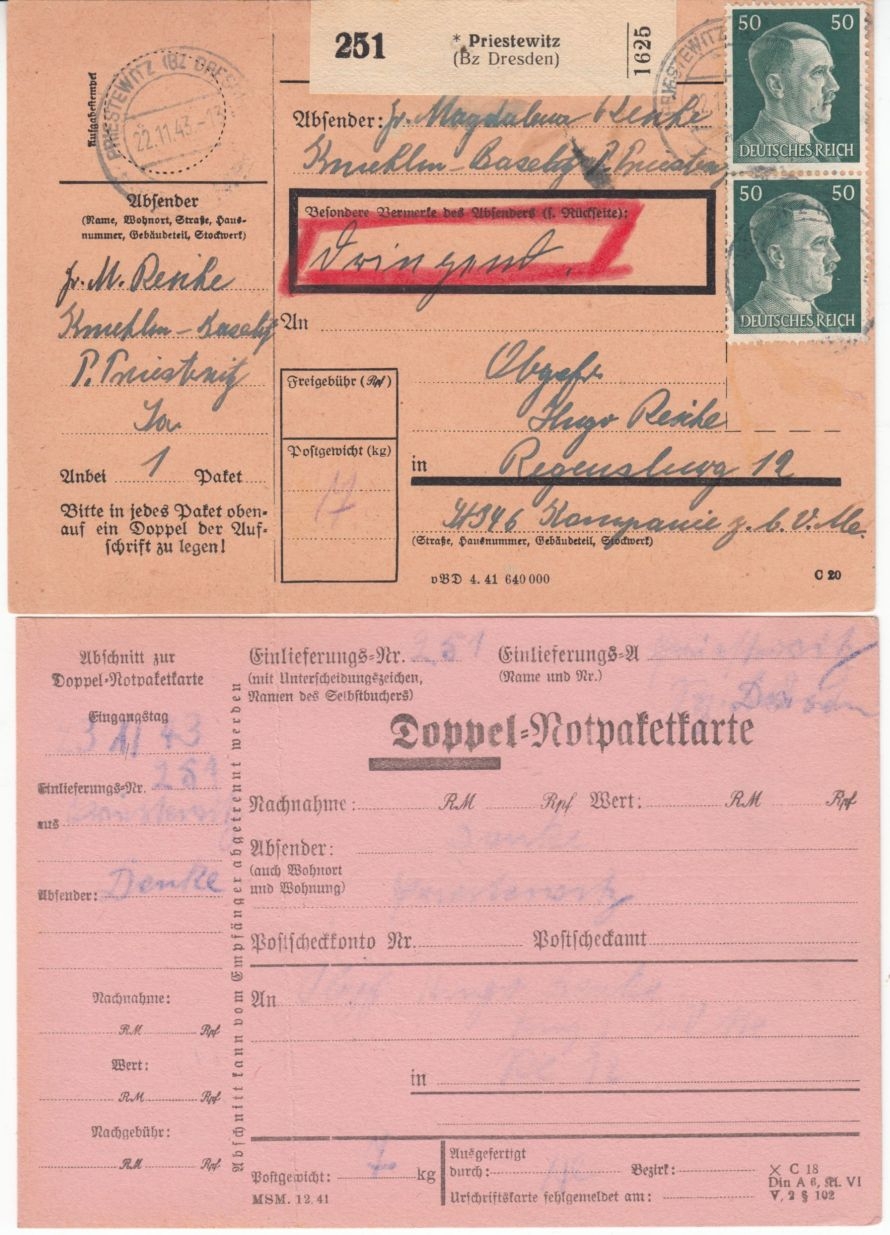 251
* Priestewitz
(Bz Dresden)
1625
50 50
DEUTSCHES REICH
50 50
DEUTSCHES REICH
Aufgabestempel
PRIESTEWITZ (BZ DRESDEN)
22.11.43.-13
Absender: Fr. Magdalena
Besondere Vermerke des Absenders (s. Rückseite):
Dringend.
Absender
(Name, Wohnort, Straße, Haus-
nummer, Gebäudeteil, Stockwerk)
Fr. M.
Sa
Anbei 1 Paket
Bitte in jedes Paket oben-
auf ein Doppel der Auf-
schrift zu legen!
Freigebühr (Rpf)
Postgewicht (kg)
An
Obgefr.
Hugo
in Regensburg 12
Kompanie z. b. V.
(Straße, Hausnummer, Gebäudeteil, Stockwerk)
vBD 4. 41 640 000
C 20
Abschnitt zur
Doppel-Notpaketkarte
Eingangstag
Einlieferungs-Nr. 251
aus
Absender: Denke
Nachnahme:
RM Rpf
Wert:
RM Rpf
Nachgebühr:
RM Rpf
Abschnitt kann vom Empfänger abgetrennt werden
Einlieferungs-Nr. 251 Einlieferungs-A Priestewitz
(mit Unterscheidungszeichen, (Name und Nr.)
Namen des Selbstbuchers)
Doppel-Notpaketkarte
Nachnahme: RM Rpf Wert: RM Rpf
Absender: Denke
(auch Wohnort
und Wohnung) Priestewitz
Postscheckkonto Nr. Postscheckamt
An Hugo Denke
in
Postgewicht: 7 kg
MSM. 12. 41
Ausgefertigt
durch: Bezirk:
Urschriftskarte fehlgemeldet am:
× C 18
Din A 6, Kl. VI
V, 2 § 102